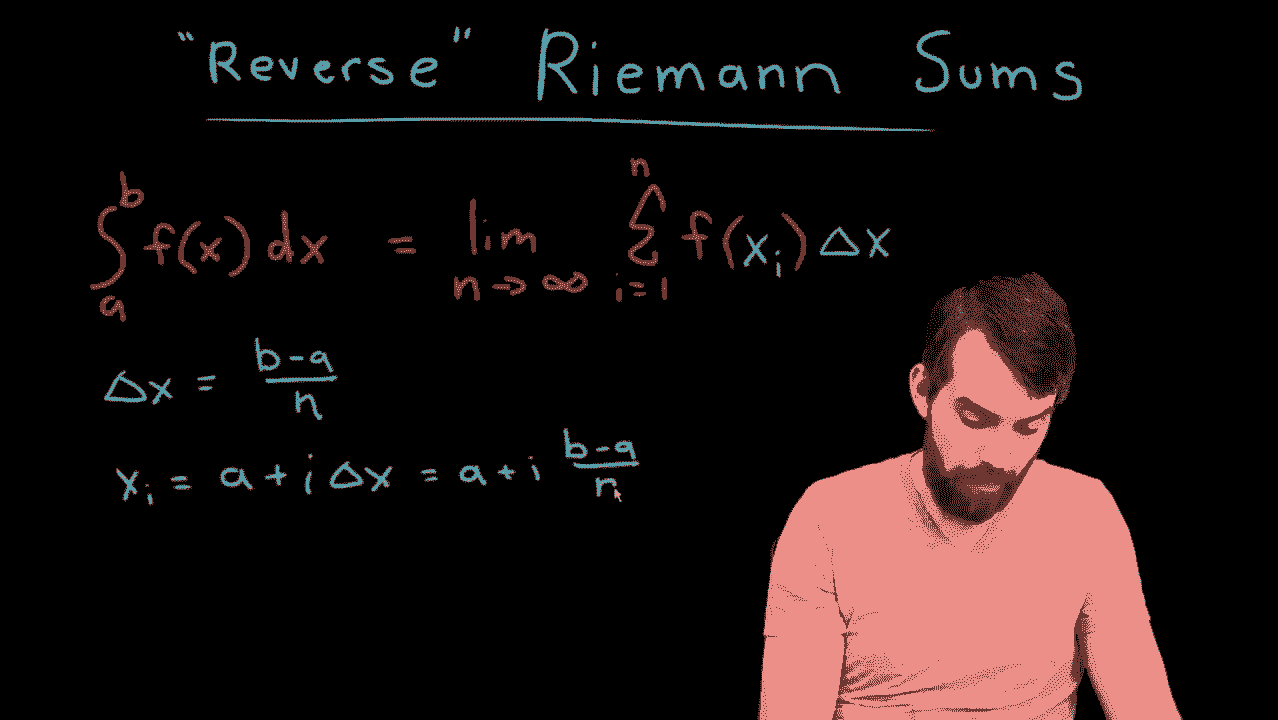 "Reverse" Riemann Sums
∫_a^b f(x) dx = lim_{n→∞} Σ_{i=1}^n f(x_i) Δx
Δx = (b-a)/n
x_i = a + i Δx = a + i (b-a)/n